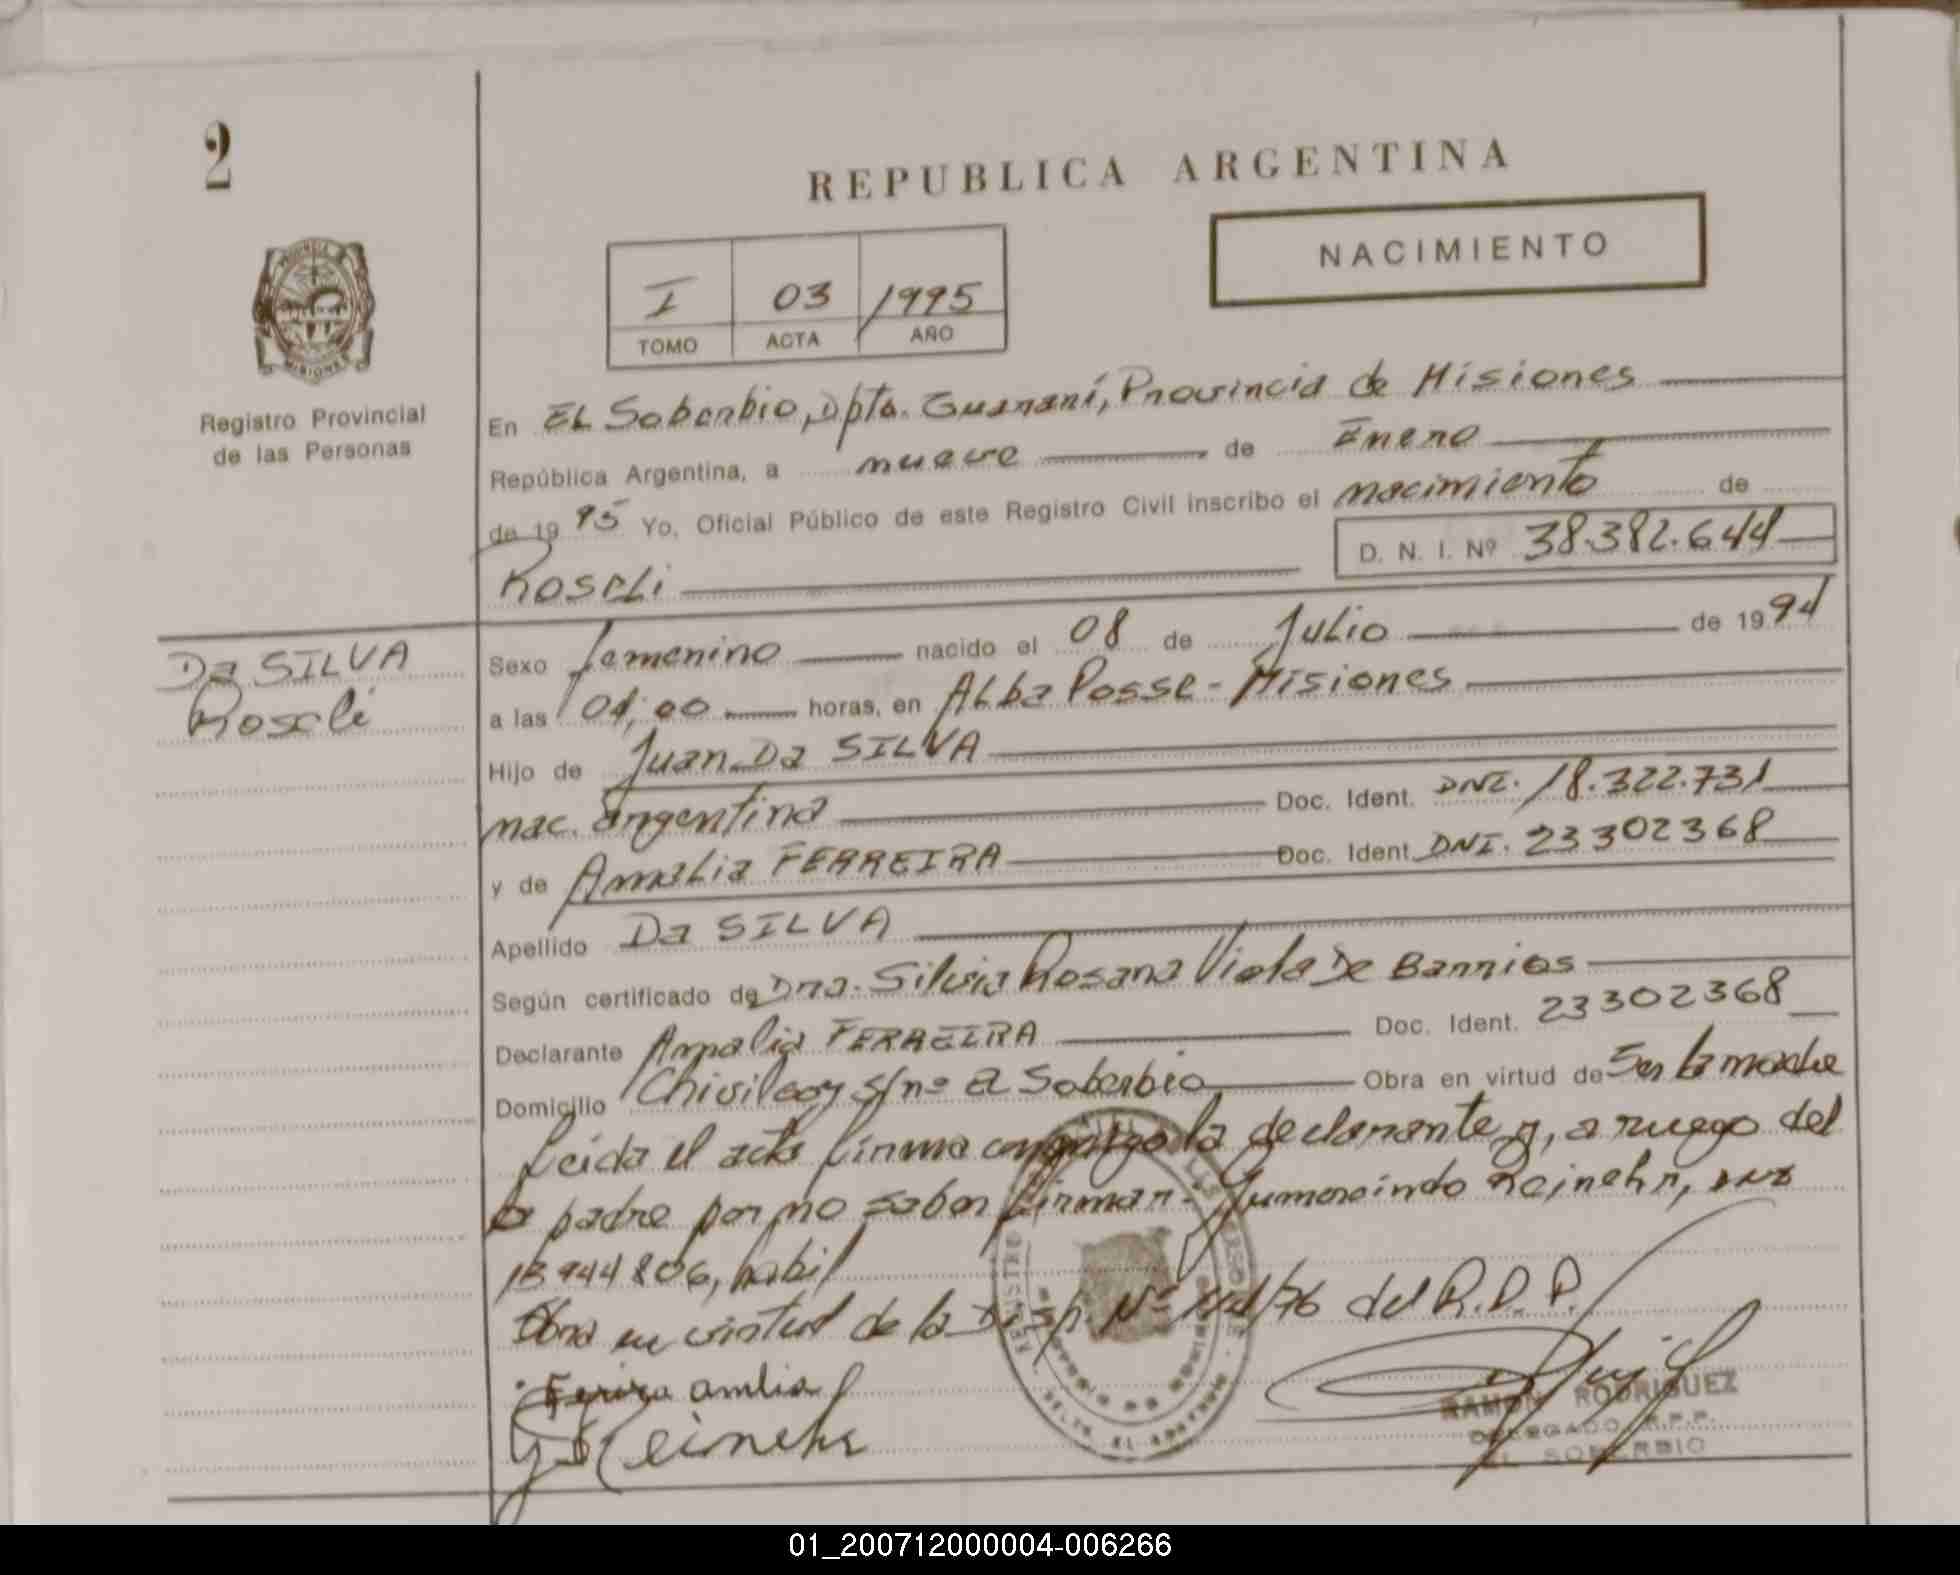 2
REPUBLICA ARGENTINA
NACIMIENTO
I 03 1995
TOMO ACTA AÑO
Registro Provincial
de las Personas
En EL Soberbio, Dpto. Guaraní, Provincia de Misiones
República Argentina, a nueve de Enero
de 1995 Yo, Oficial Público de este Registro Civil inscribo el nacimiento de
D. N. I. Nº 38.382.644
Roseli
Da SILVA
Roseli
Sexo femenino nacido el 08 de Julio de 1994
a las 04,00 horas, en Alba Posse - Misiones
Hijo de Juan Da SILVA
nac. argentina Doc. Ident. DNI. 18.322.731
y de Amalia FERREIRA Doc. Ident. DNI. 23302368
Apellido Da SILVA
Según certificado de Dra. Silvia Rosana Viola De Barrios
Declarante Amalia FERREIRA Doc. Ident. 23302368
Domicilio Chivilcoy s/nº El Soberbio Obra en virtud de Ser la madre
Leida el acta firma conmigo la declarante y, a ruego del
padre por no saber firmar - Gumercindo Reinehr, DNI
13944806, habil
Obra en virtud de la Disp. Nº 44/76 del R.P.P.
Ferira amlia
G Reinehr
RAMON RODRIGUEZ
DELEGADO R.P.P.
EL SOBERBIO
01_200712000004-006266